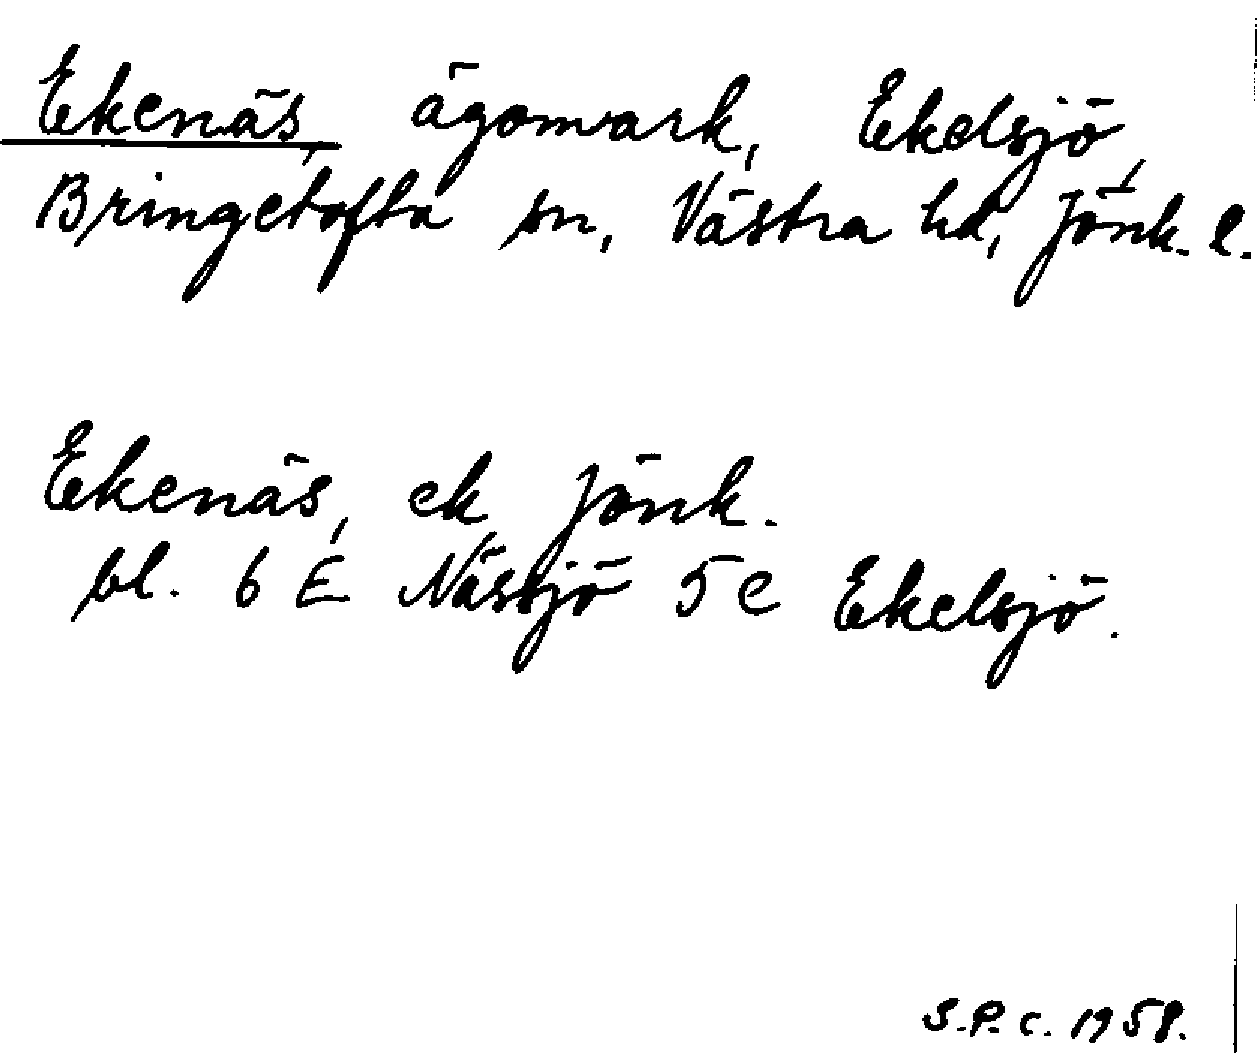 Ekenäs, ägomark, Ekelsjö,
Bringetofta sn, Västra hd, Jönk. l.
Ekenäs, ek Jönk.
bl. 6 E Nässjö 5 e Ekelsjö.
S.P.C. 1958.